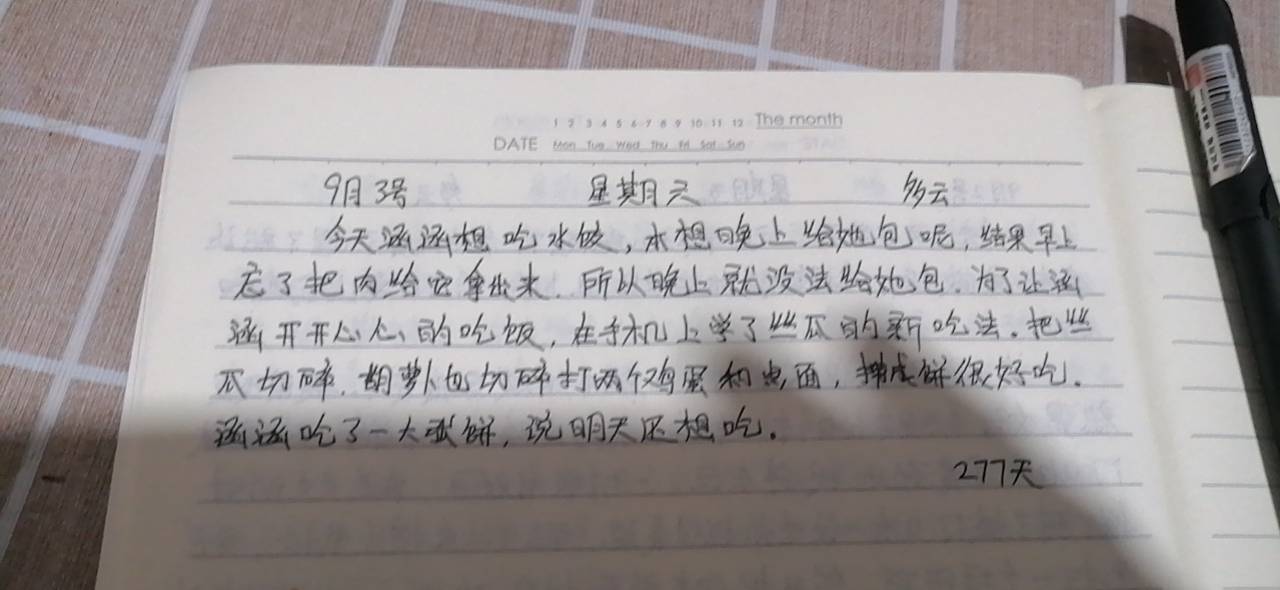 1 2 3 4 5 6 7 8 9 10 11 12 The month
DATE Mon Tue Wed Thu Fri Sat Sun
9月3号 星期天 多云
今天涵涵想吃水饺,本想晚上给她包呢,结果早上
忘了把肉给它拿出来.所以晚上就没法给她包.为了让涵
涵开开心心的吃饭,在手机上学了丝瓜的新吃法.把丝
瓜切碎.胡萝卜也切碎打两个鸡蛋和点面,摊成饼很好吃.
涵涵吃了一大张饼,说明天还想吃.
277天